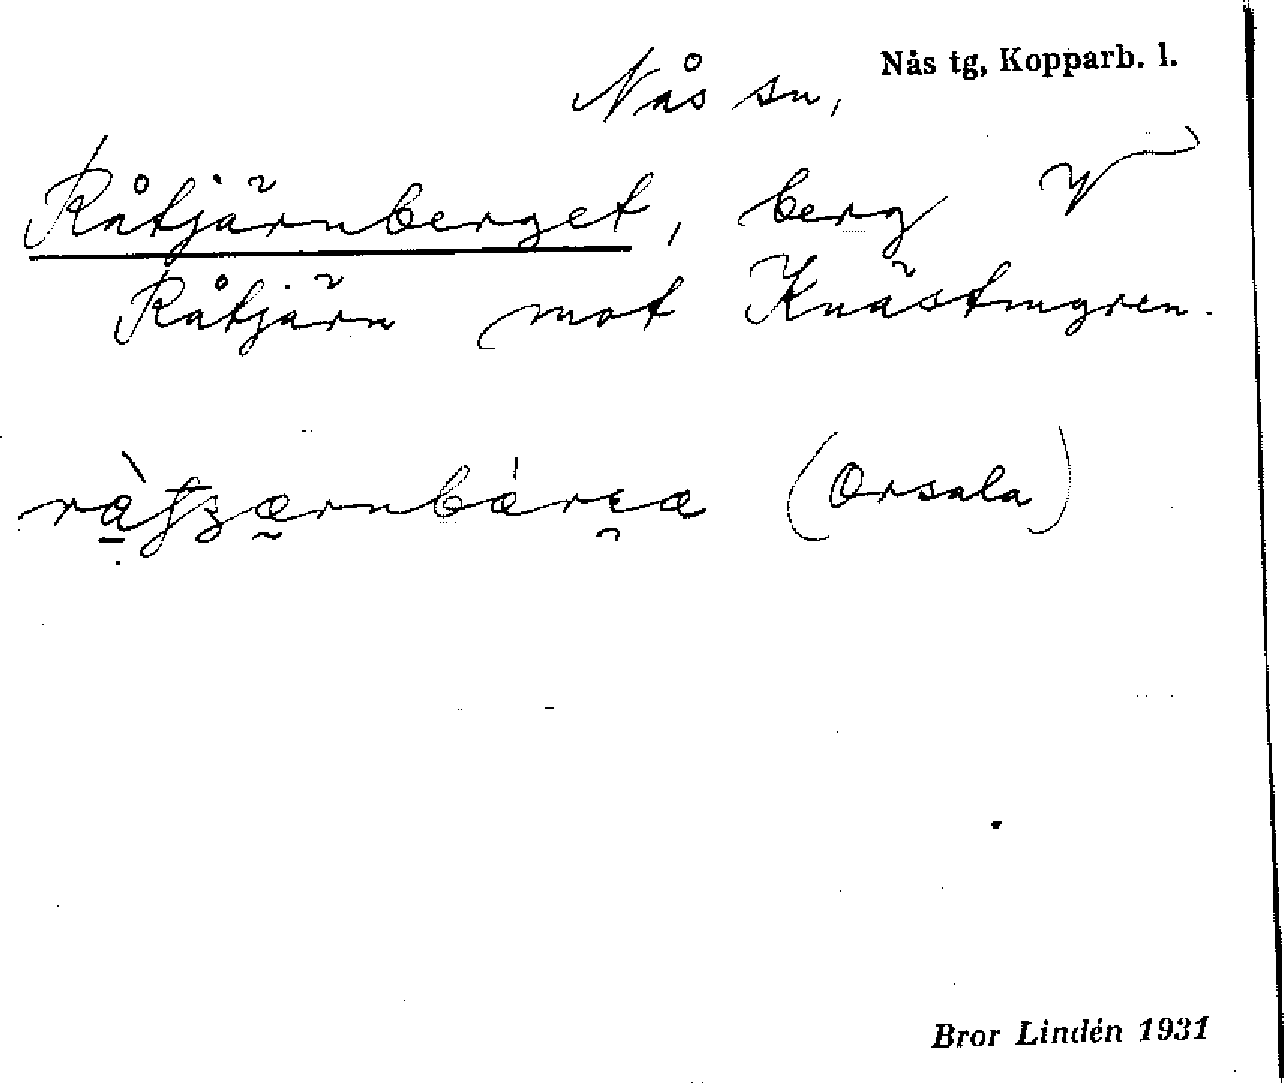 Nås tg, Kopparb. l.
Nås sn,
Råtjärnberget, berg V
Råtjärn mot Knästmyren.
(Orsala)
Bror Lindén 1931